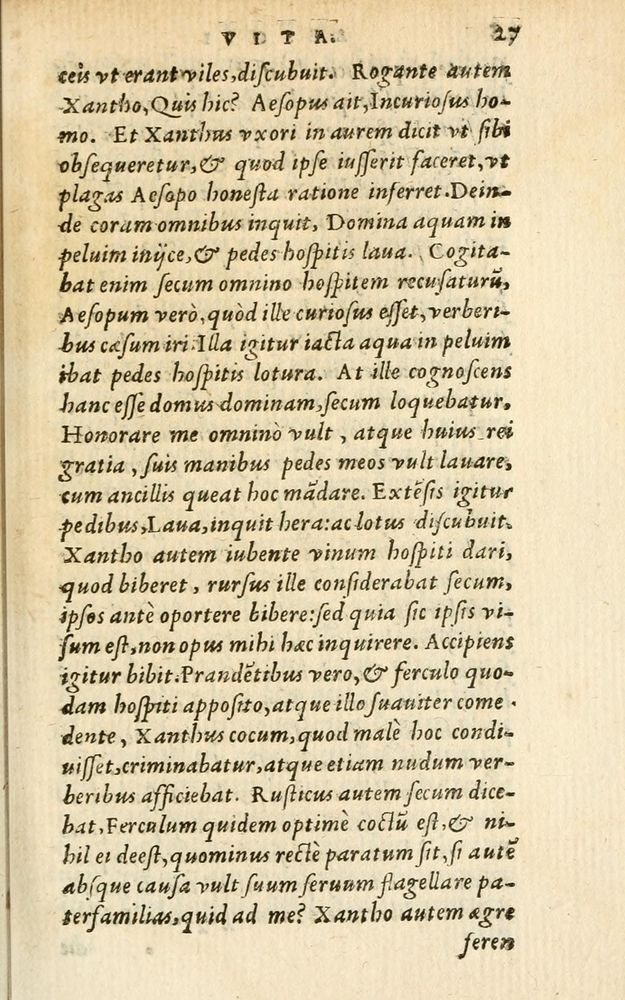 VITA. 27
ceis vt erant viles,diſcubuit. Rogante autem
Xantho,Quis hic? Aeſopus ait,Incurioſus ho-
mo. Et Xanthus vxori in aurem dicit vt ſibi
obſequeretur,& quod ipſe iuſſerit faceret,vt
plagas Aeſopo honeſta ratione inferret.Dein-
de coram omnibus inquit, Domina aquam in
peluim inijce,& pedes hoſpitis laua. Cogita-
bat enim ſecum omnino hoſpitem recuſaturũ,
Aeſopum verò,quòd ille curioſus eſſet,verberi-
bus cæſum iri.Illa igitur iacta aqua in peluim
ibat pedes hoſpitis lotura. At ille cognoſcens
hanc eſſe domus dominam,ſecum loquebatur,
Honorare me omninò vult, atque huius rei
gratia, ſuis manibus pedes meos vult lauare,
cum ancillis queat hoc mãdare. Extẽſis igitur
pedibus,Laua,inquit hera:ac lotus diſcubuit.
Xantho autem iubente vinum hoſpiti dari,
quod biberet, rurſus ille conſiderabat ſecum,
ipſos antè oportere bibere:ſed quia ſic ipſis vi-
ſum eſt,non opus mihi hæc inquirere. Accipiens
igitur bibit.Prandẽtibus vero,& ferculo quo-
dam hoſpiti appoſito,atque illo ſuauiter come-
dente, Xanthus cocum,quod malè hoc condi-
uiſſet,criminabatur,atque etiam nudum ver-
beribus afficiebat. Ruſticus autem ſecum dice-
bat,Ferculum quidem optimè coctũ eſt,& ni-
hil ei deeſt,quominus rectè paratum ſit,ſi autẽ
abſque cauſa vult ſuum ſeruum flagellare pa-
terfamilias,quid ad me? Xantho autem ægre
feren